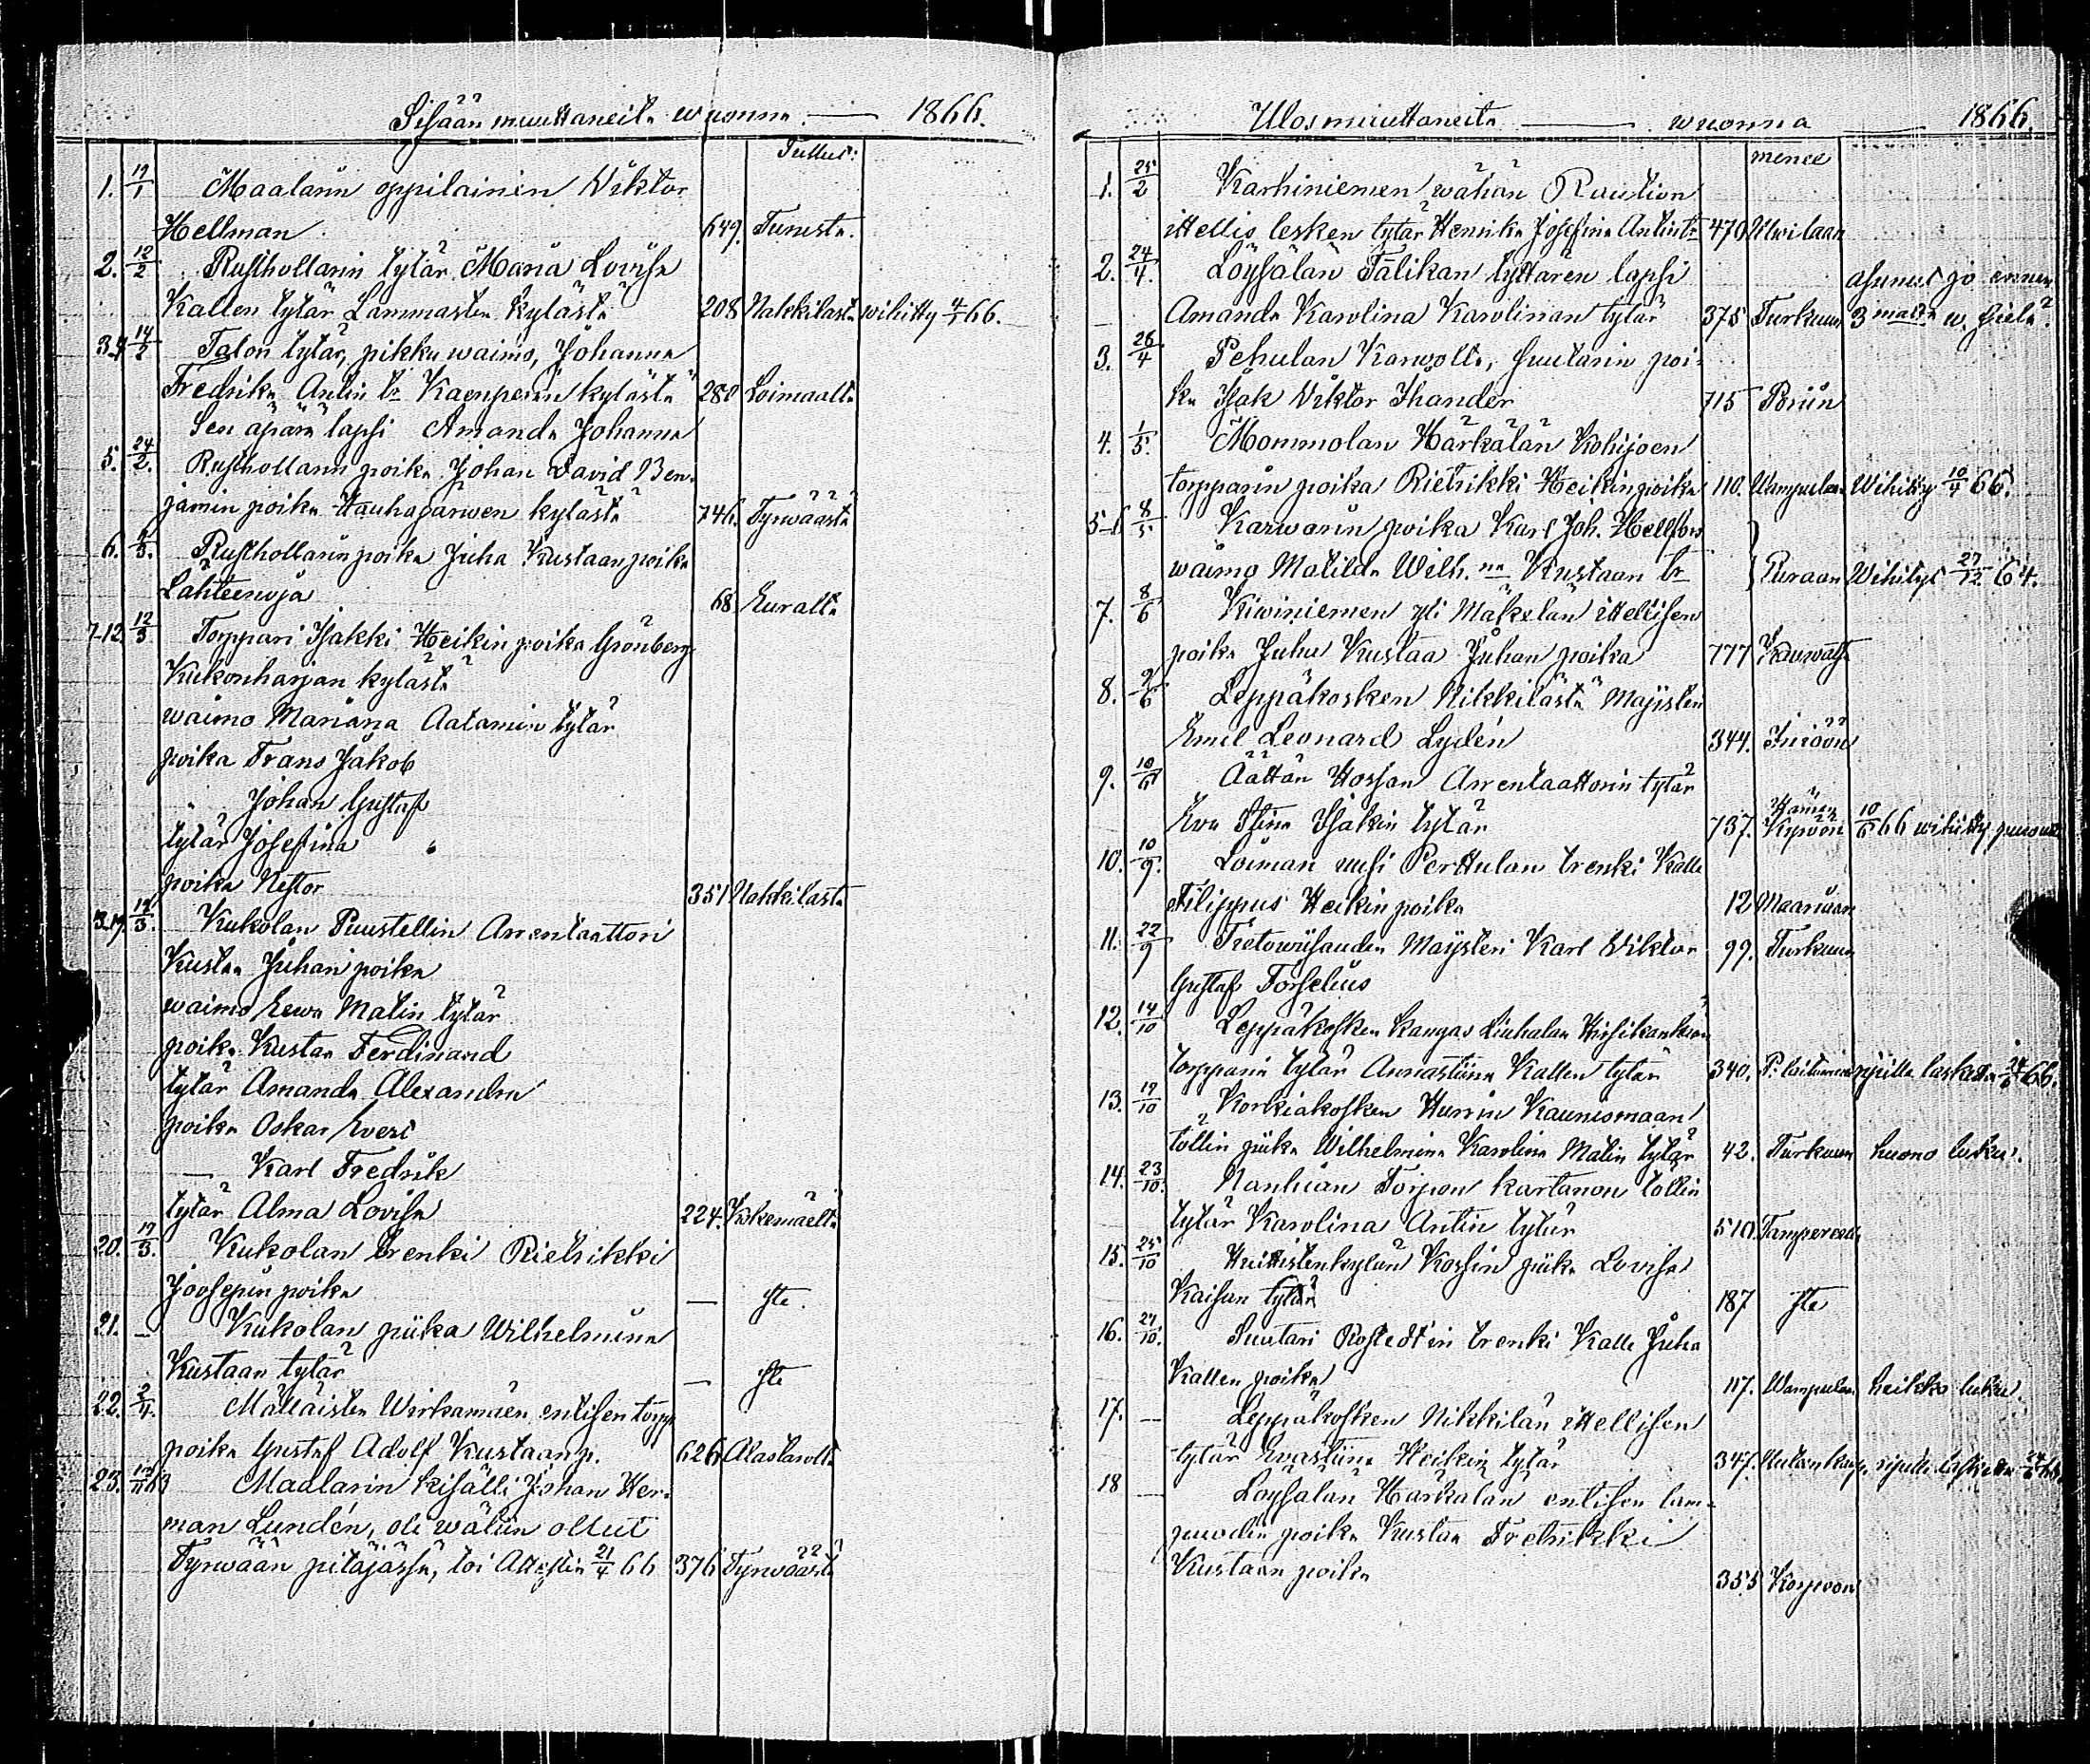 Sisään muuttaneita wuonna — 1866.
Tullut:
1. 19/1 Maalarin oppilainen Wiktor
Hellman 649. Turusta.
2. 12/2 Rusthollarin tytär Maria Lovisa
Kallen tytär Lammasten kylästä 208 Nakkilasta wihitty 4/7 66.
3-4 14/2 Talon tytär, pikku waimo, Johanna
Fredrika Antin tr kylästä 280 Loimaalta
Sen äpärä lapsi Amanda Johanna
5. 24/2. Rusthollarin poika Johan David Ben-
jamin poika Hauhajärwen kylästä 746. Tyrwäästä
6. Rusthollarin poika Juha Kustaan poika
Lähteenoja 68 Euralta
7-12 12/3 Torppari Isakki Heikin poika Grönberg
Kukonharjan kylästä
waimo Mariana Aatamin tytär
poika Frans Jakob
" Johan Gustaf
tytär Josefina
poika Nestor 351 Nakkilasta
13-19. 19/3. Kukolan Puustellin Arrentaattori
Kustaa Juhan poika
waimo Eewa Matin tytär
poika Kustaa Ferdinand
tytär Amanda Alexandra
poika Oskar Evert
— Karl Fredrik
tytär Alma Lovisa 224. Kokemäeltä
20. 19/3. Kukolan trenki Rietrikki
Joosepin poika — ste.
21. — Kukolan piika Wilhelmiina
Kustaan tytär — ste
22. 2/4. Mällaisten Wirkamäen entisen torpp
poika Gustaf Adolf Kustaanp. 626 Alastarolta
23. Maalarin kisälli Johan Her-
man Lundén, oli wäliin ollut
Tyrwään pitäjässä, toi Attestin 21/4 66 376 Tyrwäästä
Ulosmuuttaneita — wuonna — 1866.
menee
1. 25/2 Karhiniemen wähän Raution
ittellis lesken tytär Henrika Josefina Antintr 470 Ulwilaan
2. 24/4. Löysälän Tälikan tyttären lapsi asunut jo ennen
Amanda Karolina Karolinan tytär 375 Turkuun 3 w. sielä.
3. 26/4 Pehulan Karwolta, suutarin poi-
ka Isak Wiktor Ihander 715 Poriin
4. 1/5. Mommolan Härkälän Kohijoen
torpparin poika Rietrikki Heikin poika 110. Wampulaan Wihitty 10/4 66.
5-6 8/5 Karwarin poika Karl Joh. Hellfors
waimo Matilda Wilh.na Kustaan tr Euraan Wihityt 27/12 64.
7. 8/6 Kiwiniemen yli Mäkelän ittellisen
poika Juha Kustaa Juhan poika 777
8. 9/6 Leppäkosken Nikkilästä Majisteri
Emil Leonard Lydén 344. Inioön
9. 10/6 Äättän Hossan Arrentaattorin tytär
Eva Stina Isakin tytär 737. Hämen Kyröön 10/6 66 wihitty
10. 10/9. Loiman uusi Perttulan trenki Kalle
Filippus Heikin poika 12 Maariaan
11. 22/9 Tietowiisauden Maijsteri Karl Wiktor 99. Turkuun
Gustaf Forselius
12. 14/10 Leppäkosken kangas Liuhalan
torpparin tytär Annastiina Kallen tytär 340. ripille laskettu 24/6 66.
13. 19/10 Korkiakosken Hurrin Kaunismaan
tollin piika Wilhelmina Karolina Matin tytär 42. Turkuun huono luku.
14. 23/10. Nanhian Torpon kartanon tollin
tytär Karolina Antin tytär 510. Tampereelle
15. 25/10 Huittistenkylän Kossin piika Lovisa
Kaisan tytär 187 ste
16. 27/10. Suutari Rostedt'in trenki Kalle Juha
Kallen poika 117. Wampulaan heikko luku.
17. — Leppäkosken Nikkilän ittellisen
tytär Evastiina Heikin tytär 347. ripille laskettu 24/6 66
18 — Löysälän Härkälän entisen lam-
puodin poika Kustaa Fretrikki
Kustaan poika 355 Korpoon